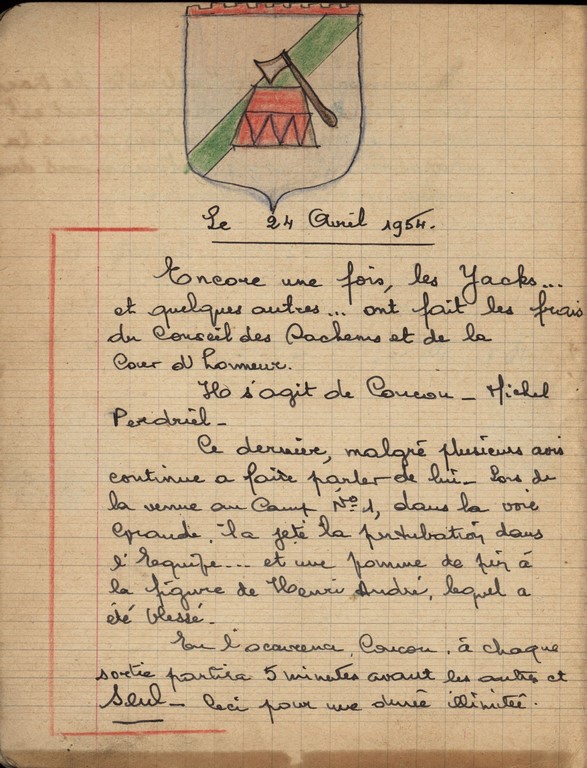 Le 24 Avril 1954.
Encore une fois, les Yacks...
et quelques autres... ont fait les frais
du Conseil des Sachems et de la
Cour d'honneur.
Il s'agit de Coucou - Michel
Perdriel -
Ce dernier, malgré plusieurs avis
continue a faire parler de lui - Lors de
la venue au Camp Nº 1, dans la voie
Grande, la jeté la pertubation dans
l'Equipe.... et une pomme de pin à
la figure de Henri André, lequel a
été blessé -
En l'occurence, Coucou, à chaque
sortie partira 5 minutes avant les autres et
Seul - Ceci pour une durée illimitée.